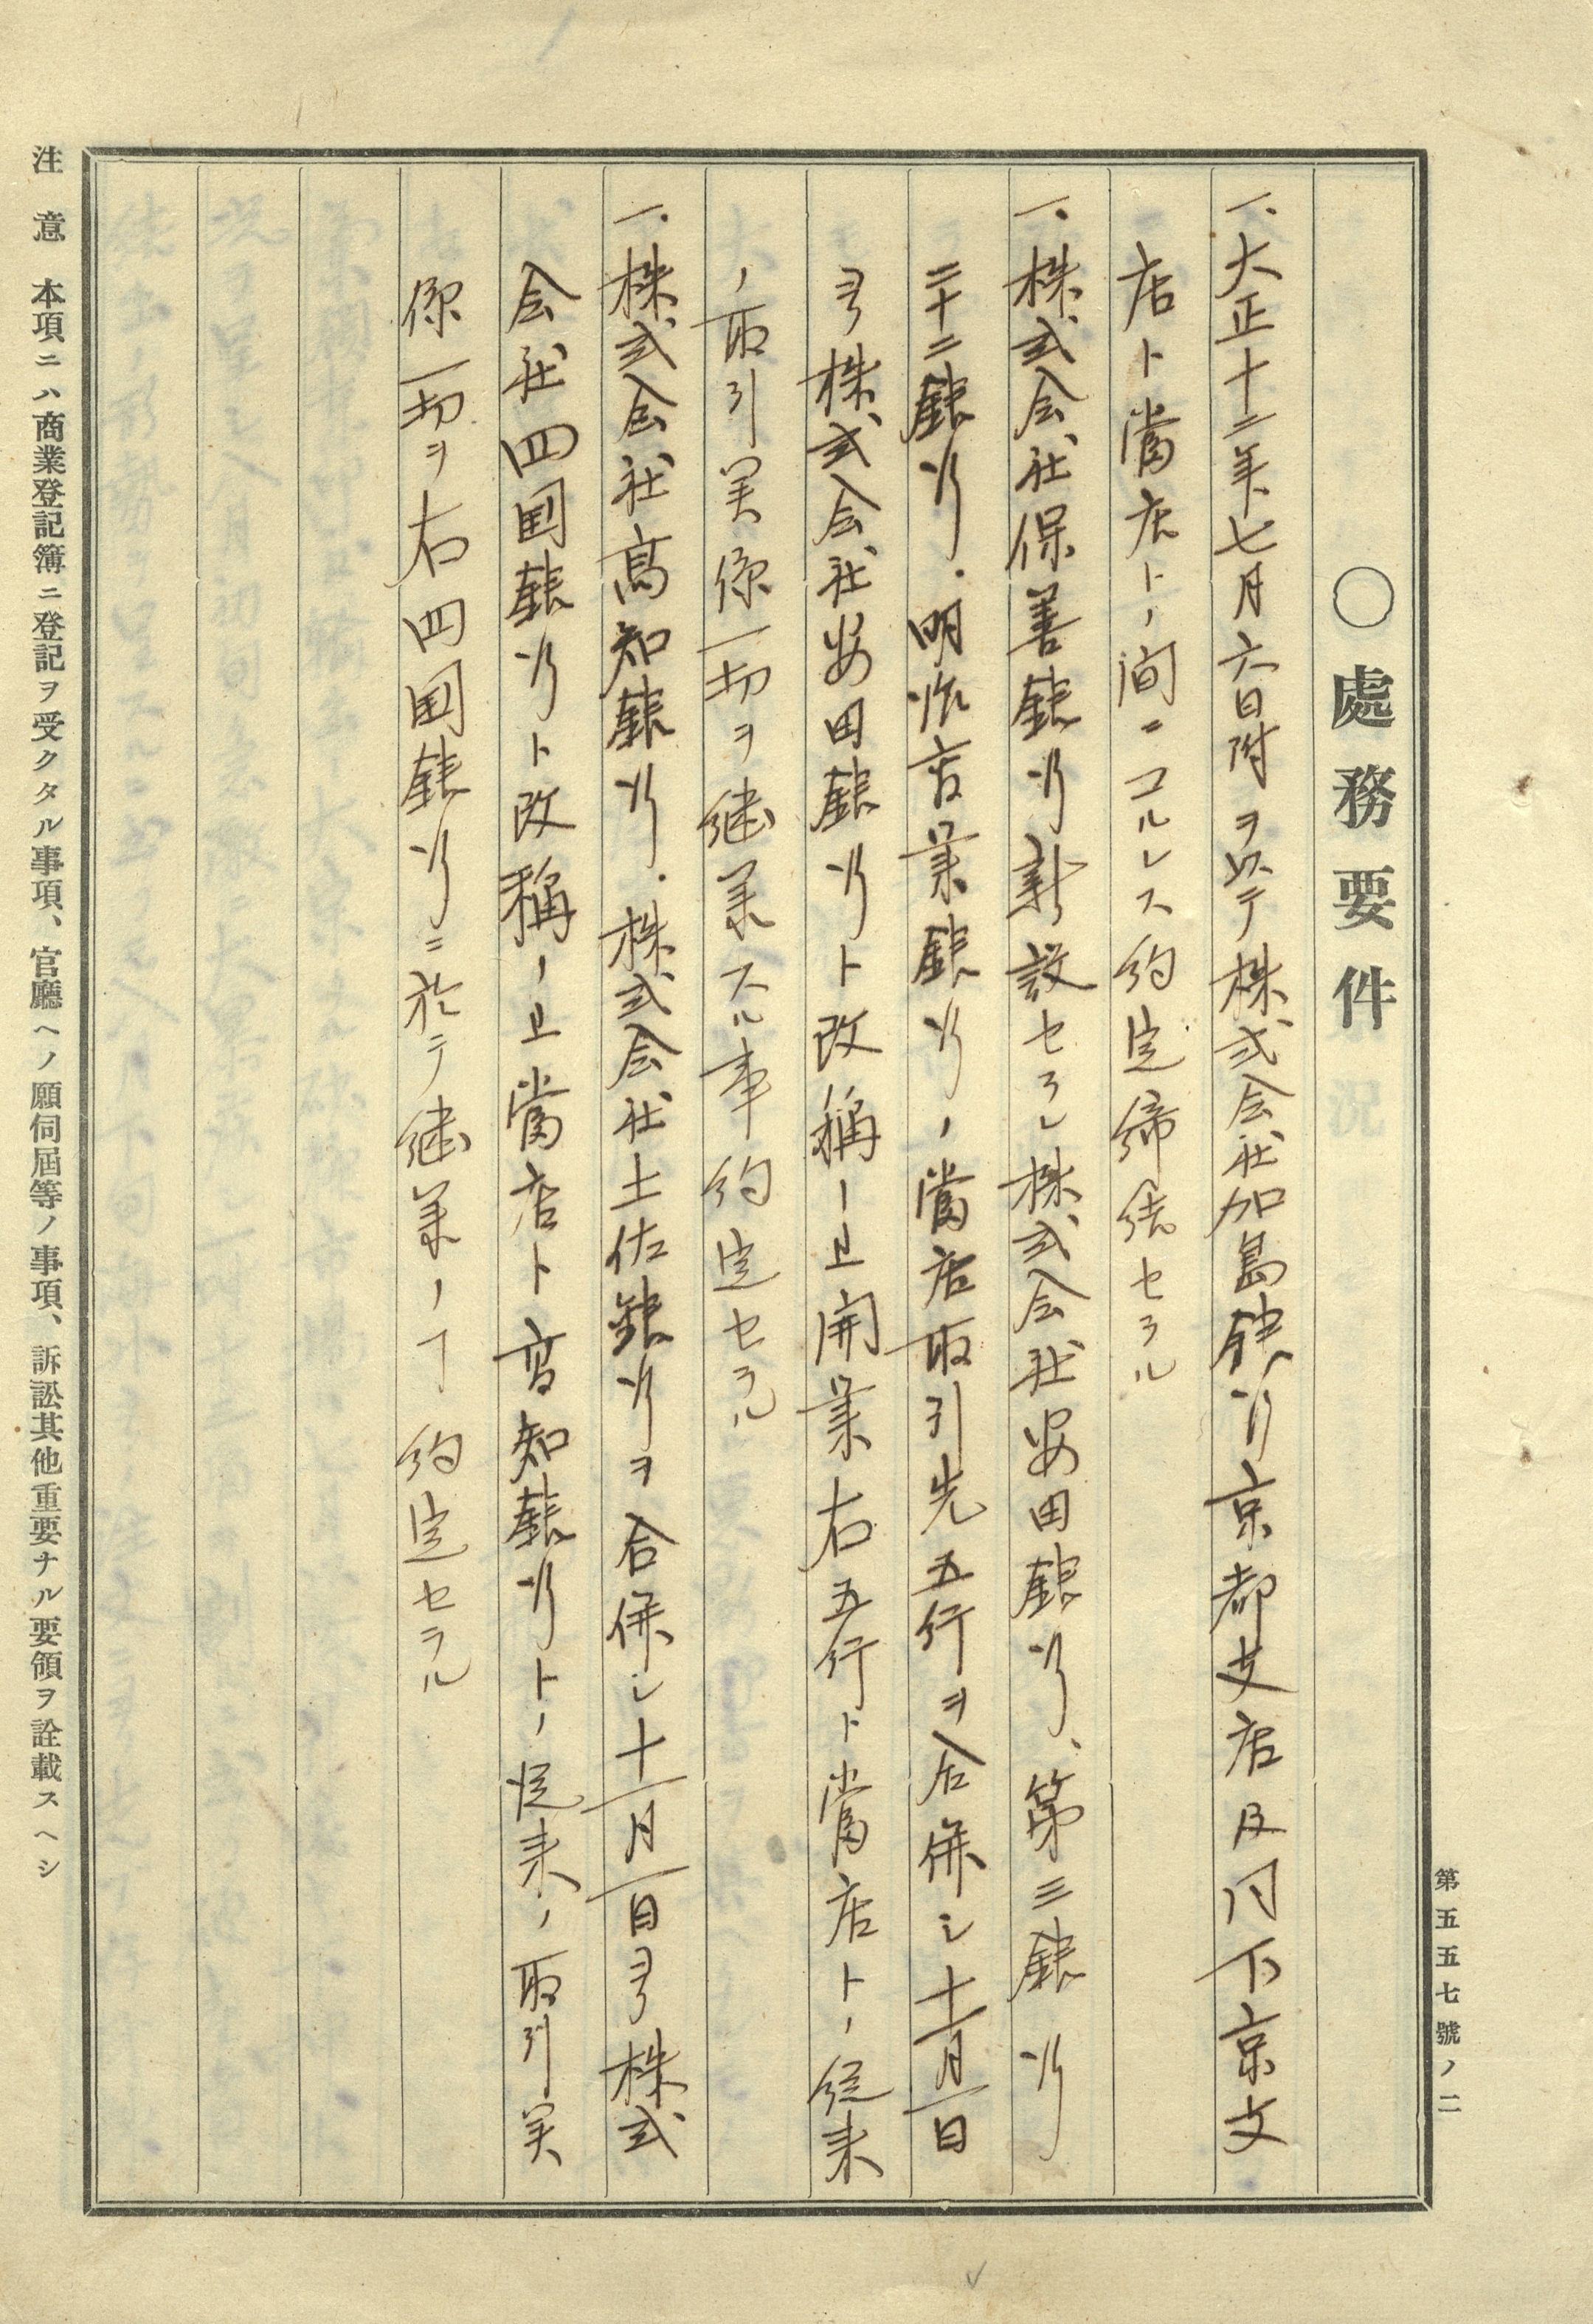 第五五七號ノ二
〇處務要件
一、大正十二年七月六日附ヲ以テ株式会社加島銀行京都支店及同下京支
店ト當店トノ間ニコルレス約定締結セラル
一、株式会社保善銀行新設セラレ株式会社安田銀行、第三銀行
二十二銀行、明治商業銀行ノ當店取引先五行ヲ合併シ十一月一日
ヨリ株式会社安田銀行ト改稱ノ上開業右五行ト當店トノ從来
ノ取引関係一切ヲ継業スル事約定セラル
一、株式会社高知銀行、株式会社土佐銀行ヲ合併シ十一月一日ヨリ株式
会社四国銀行ト改稱ノ上當店ト高知銀行トノ從来ノ取引関
係一切ヲ右四国銀行ニ於テ継業ノヿ約定セラル
注意 本項ニハ商業登記簿ニ登記ヲ受クタル事項、官廳ヘノ願伺屆等ノ事項、訴訟其他重要ナル要領ヲ詮載スヘシ